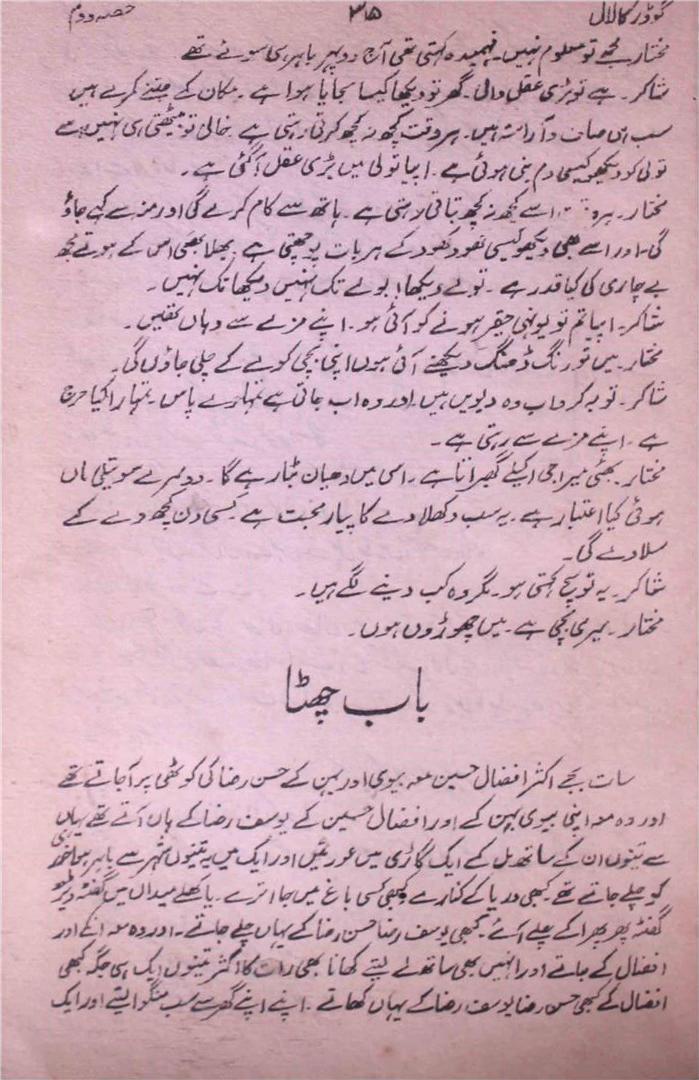 گودڑ کا لال ۳۱۵ حصہ دوم
مختار۔ مجھے تو معلوم نہیں۔ فہمیدہ کہتی تھی آج دوپہر باہر ہی سوئے تھے
شاکر۔ ہے تو بڑی عقل والی۔ گھر تو دیکھا کیسا سجایا ہوا ہے۔ مکان کے جتنے کمرے ہیں
سب ہی صاف و آراستہ ہیں۔ ہر وقت کچھ نہ کچھ کرتی رہتی ہے۔ خالی تو بیٹھتی ہی نہیں ہے
تولی کو دیکھو کیسی دم بنی ہوئی ہے۔ اپیا تولی میں بڑی عقل آگئی ہے۔
مختار۔ ہر وقت اسے کچھ نہ کچھ بتاتی رہتی ہے۔ ہاتھ سے کام کرے گی اور منہ سے کہے جاؤ
گی۔ اور اسے بھی دیکھو کیسی کھود کھود کے ہر بات پوچھتی ہے۔ بھلا بھئی اس کے ہوتے مجھ
بے چاری کی کیا قدر ہے۔ تولے دیکھا، بولے تک نہیں دیکھا تک نہیں۔
شاکر۔ اپیا تم تو یونہی حقیر ہونے کو آئی ہو۔ اپنے مزے سے وہاں تھیں۔
مختار۔ میں تو رنگ ڈھنگ دیکھنے آئی ہوں اپنی بچی کو لے کے چلی جاؤں گی۔
شاکر۔ توبہ کرو اب وہ دیویں ہیں۔ اور وہ اب جاتی ہے تمہارے پاس۔ تمہارا کیا حرج
ہے۔ اپنے مزے سے رہتی ہے۔
مختار۔ بھئی میرا جی اکیلے گھبراتا ہے۔ اسی میں دھیان بٹا رہے گا۔ دوسرے سوتیلی ماں
ہوئی کیا اعتبار ہے۔ یہ سب دکھلاوے کا پیار محبت ہے۔ کسی دن کچھ دے کے
سلا دے گی۔
شاکر۔ یہ تو سچ کہتی ہو۔ مگر وہ کب دینے لگے ہیں۔
مختار۔ میری بچی ہے۔ میں چھوڑوں ہوں۔
باب چھٹا
سات بجے اکثر افضال حسین معہ بیوی اور بہن کے حسن رضا کی کوٹھی پر آجاتے تھے
اور وہ معہ اپنی بیوی بہن کے اور افضال حسین کے یوسف رضا کے ہاں آتے تھے یہاں
سے تینوں ان کے ساتھ مل کے ایک گاڑی میں عورتیں اور ایک میں یہ تینوں شہر سے باہر ہوا خوری
کو چلے جاتے تھے۔ کبھی دریا کے کنارے کبھی کسی باغ میں جا اترے۔ یا کھلے میدان میں گھنٹہ ڈیڑھ
گھنٹہ پھر پھرا کے چلے آئے۔ کبھی یوسف رضا حسن رضا کے یہاں چلے جاتے۔ اور وہ معہ انکے اور
افضال کے جاتے اور انہیں بھی ساتھ لے لیتے کھانا بھی رات کا اکثر تینوں ایک ہی جگہ کبھی
افضال کے کبھی حسن رضا یوسف رضا کے یہاں کھاتے۔ اپنے اپنے گھر سے سب منگوا لیتے اور ایک